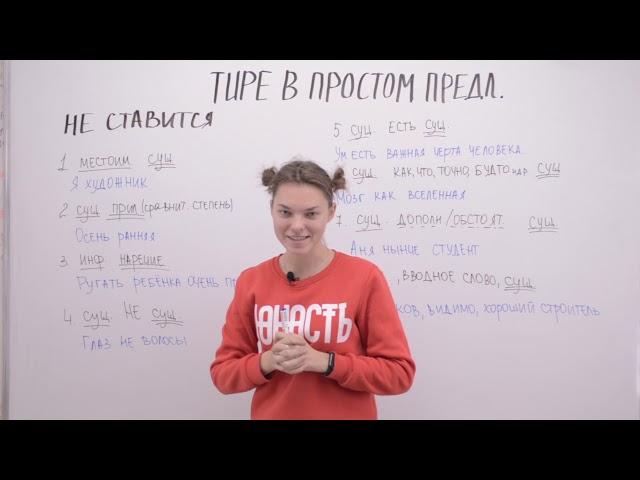 ТИРЕ В ПРОСТОМ ПРЕДЛ.
НЕ СТАВИТСЯ
1. МЕСТОИМ. СУЩ.
Я ХУДОЖНИК
2. СУЩ. ПРИЛ. (СРАВНИТ. СТЕПЕНЬ)
ОСЕНЬ РАННЯЯ
3. ИНФ. НАРЕЧИЕ
РУГАТЬ РЕБЁНКА ОЧЕНЬ
4. СУЩ. НЕ СУЩ.
ГЛАЗ НЕ ВОЛОСЫ
5 СУЩ. ЕСТЬ СУЩ.
УМ ЕСТЬ ВАЖНАЯ ЧЕРТА ЧЕЛОВЕКА.
СУЩ. КАК, ЧТО, ТОЧНО, БУДТО СУЩ
МОЗГ КАК ВСЕЛЕННАЯ
7. СУЩ. ДОПОЛН/ОБСТОЯТ. СУЩ.
АНЯ НЫНЧЕ СТУДЕНТ
, ВВОДНОЕ СЛОВО, СУЩ.
КОВ, ВИДИМО, ХОРОШИЙ СТРОИТЕЛЬ
ЮНОСТЬ